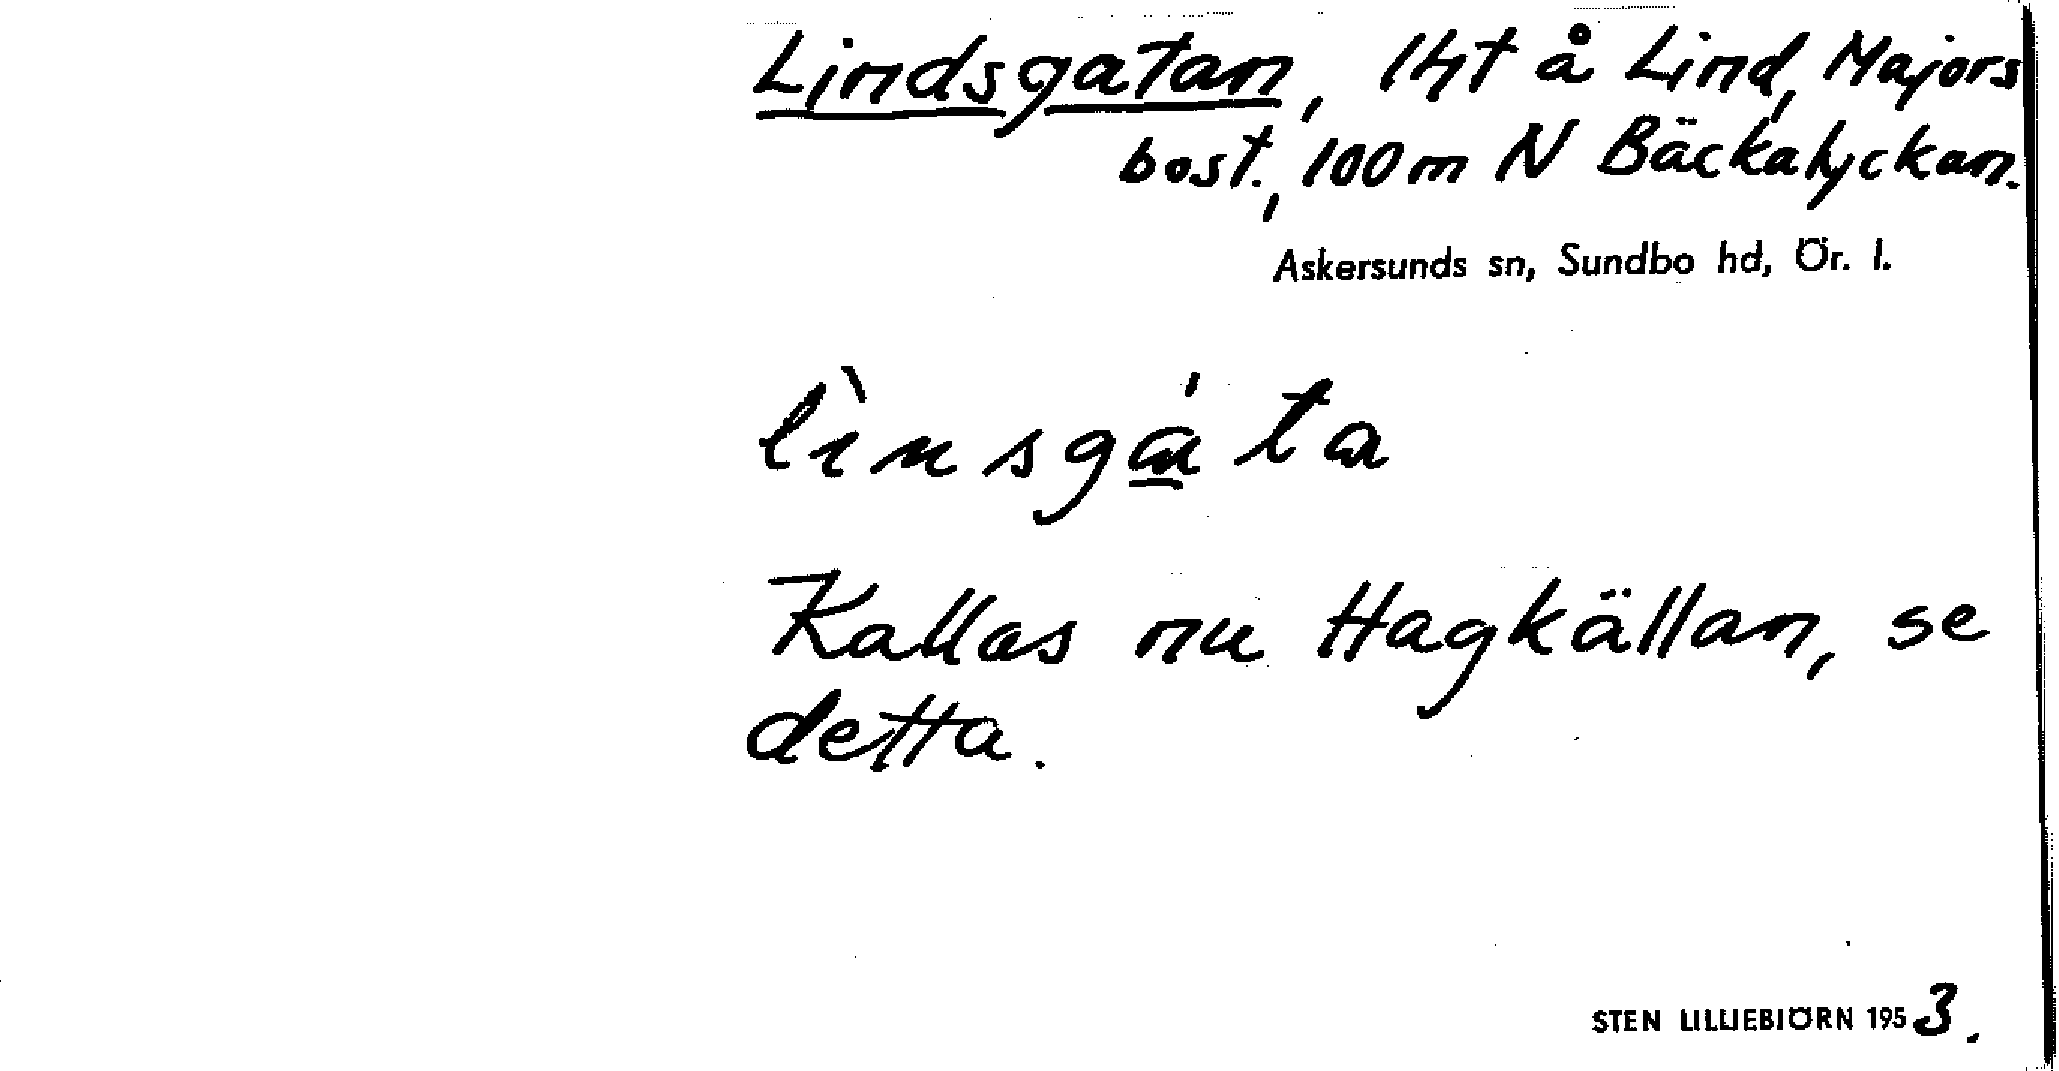 Lindsgatan, lht å Lind, Majors
bost., 100 m N Bäckalyckan.
Askersunds sn, Sundbo hd, Ör. l.
lìnsgáta
Kallas nu Hagkällan, se
detta.
STEN LILLIEBJÖRN 1953.